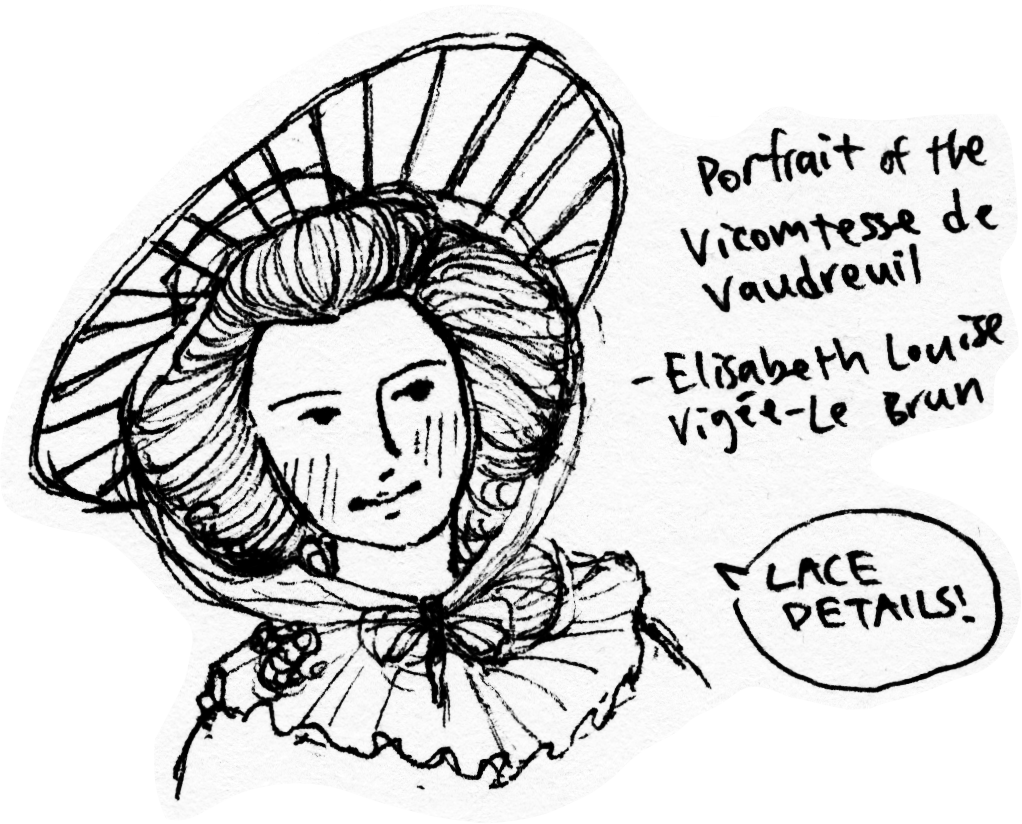 Portrait of the
Vicomtesse de
Vaudreuil
-Elisabeth Louise
Vigée-Le Brun
LACE
DETAILS!